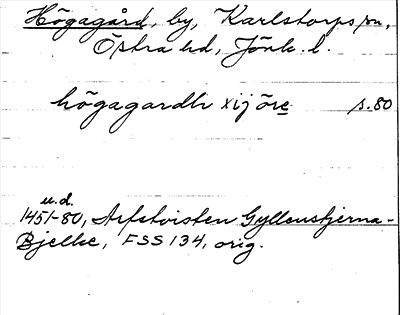 Högagård, by, Karlstorps sn,
Östra hd, Jönk. l.
högagardh xij öre s. 80
u.d.
1451-80, Arfstvisten Gyllenstjerna-
Bjelke, FSS 134, orig.